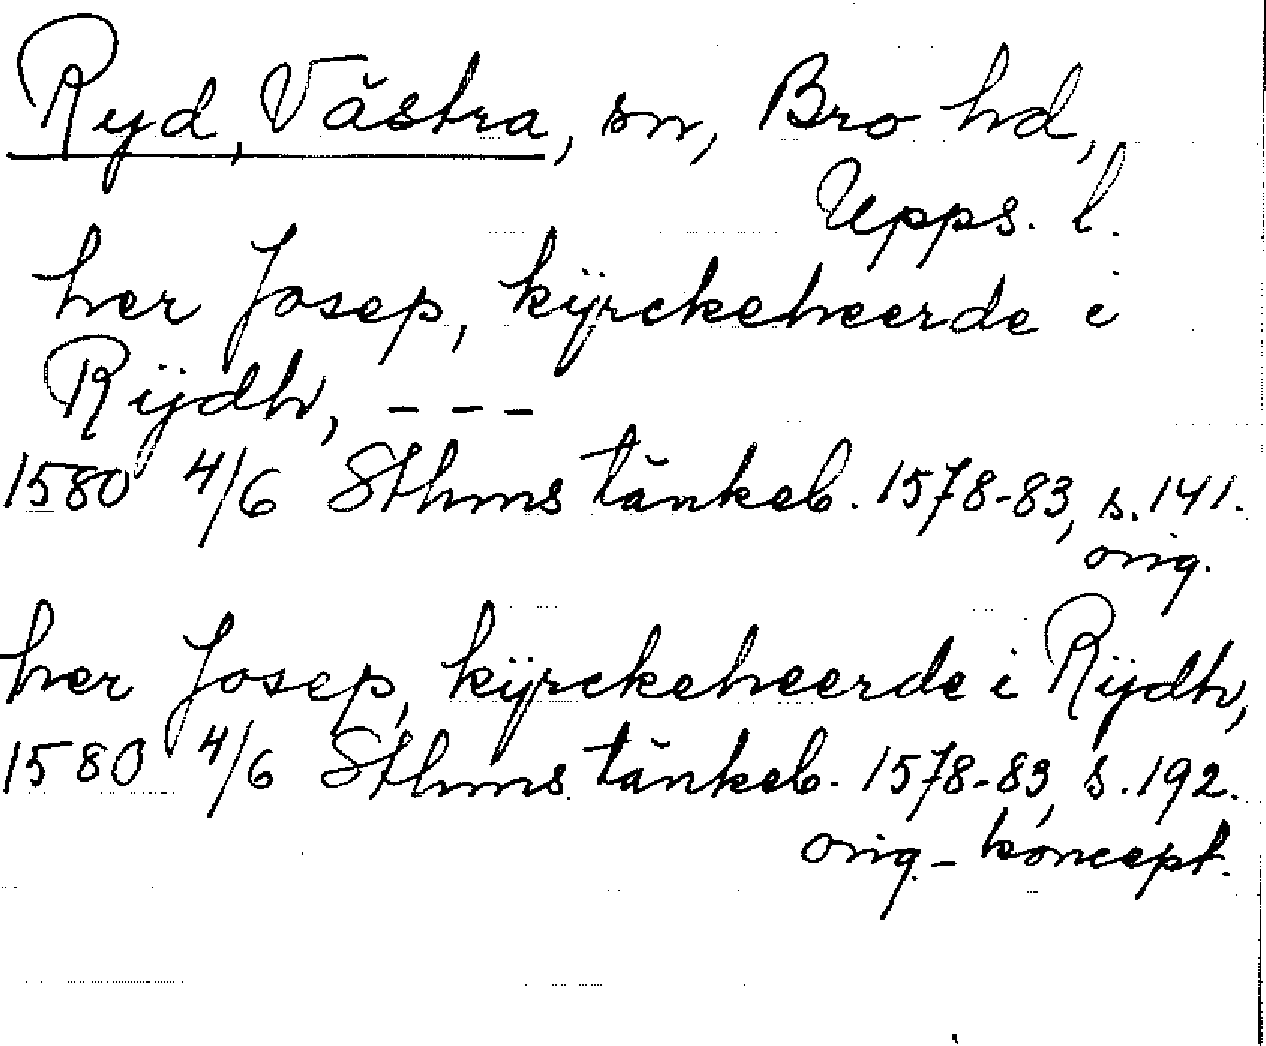 Ryd, Västra, sn, Bro hd,
Upps. l.
her Josep, kÿrckeheerde i
Rÿdh, - - -
1580 4/6 Sthms tänkeb. 1578-83, s. 141.
orig.
her Josep, kÿrckeheerde i Rÿdh,
1580 4/6 Sthms tänkeb. 1578-83, s. 192.
orig.-koncept.